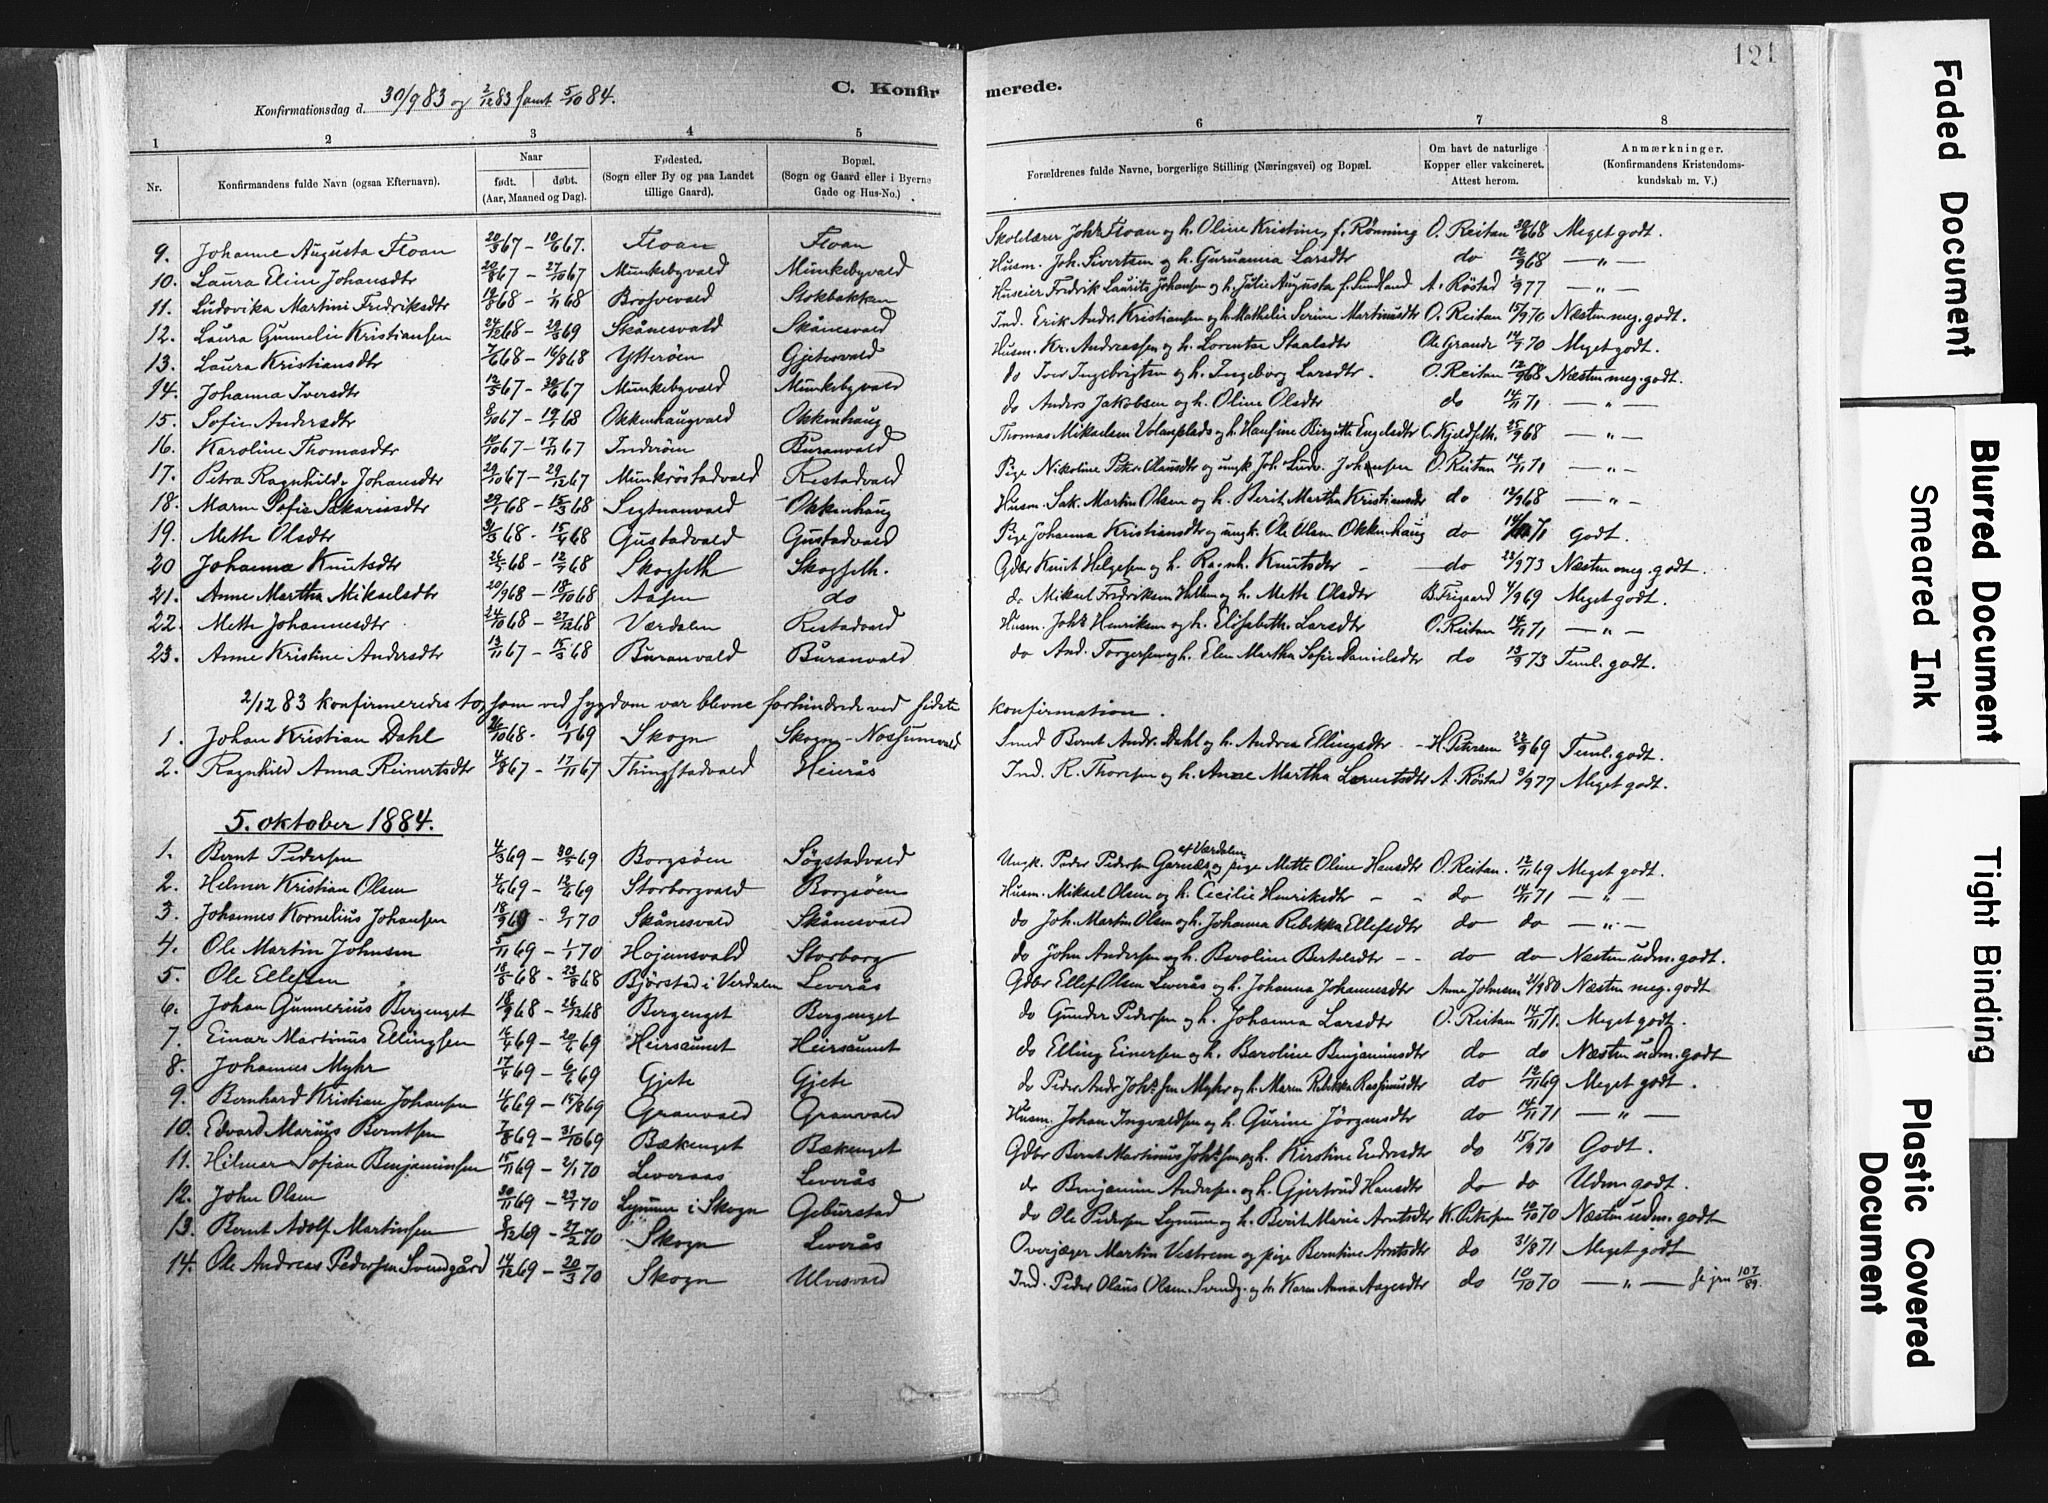 121
Konfirmationsdag d. 30/9 83 og 2/12 83 samt 5/10 84.
C. Konfirmerede.
1 2 3 4 5 6 7 8
Nr. Konfirmandens fulde Navn (ogsaa Efternavn). Naar født. døbt. (Aar, Maaned og Dag). Fødested. (Sogn eller By og paa Landet tillige Gaard). Bopæl. (Sogn og Gaard eller i Byerne Gade og Hus-No.) Forældrenes fulde Navne, borgerlige Stilling (Næringsvei) og Bopæl. Om havt de naturlige Kopper eller vakcineret. Attest herom. Anmærkninger. (Konfirmandens Kristendoms-kundskab m. V.)
9. Johanne Augusta Floan 20/3 67 – 10/6 67. Floan Floan Skolelærer Johs Floan og h. Oline Kristine f. Rønning O. Reitan 68 Meget godt.
10. Laura Eline Johansdtr 20/8 67 – 27/10 67 Munkebyvald Munkebyvald Husm. Joh. Sivertsen og h. Guruanna Larsdtr do 12/9 68 — „ —
11. Ludovika Martini Fredriksdtr 19/8 68 – 1/11 68 Brosvevald Stokbakken Huseier Fredrik Laurits Johansen og h. Julie Augusta f. Sundland A. Røstad 1/9 77 — „ —
12. Laura Gunnelie Kristiansen 24/12 68 – 69 Skånesvald Skånesvald Ind. Erik Andr. Kristiansen og h. Mathelie Serine Martinusdtr O. Reitan 15/9 70 Næsten meg. godt.
13. Laura Kristiansdtr 7/6 68 – 16/8 68 Ytterøen Gjetesvald Husm. Kr. Andreassen og h. Lorentse Staalsdtr Ole Grande 14/9 70 Meget godt.
14. Johanna Iversdtr 12/5 67 – 20/6 67 Munkebyvald Munkebyvald do Iver Ingebrigtsen og h. Ingeborg Larsdtr. O. Reitan 12/9 68 Næsten meg. godt.
15. Sofie Andersdtr 9/10 67 – 19/1 68 Okkenhaugvald Okkenhaug do Anders Jakobsen og h. Oline Olsdtr do 14/11 71 — „ —
16. Karoline Thomasdtr 10/10 67 – 17/11 67 Inderøen Buranvald Thomas Mikaelsen Volanplads og h. Hansine Birgitte Engelsdtr C. Kjeldseth. 25/9 68 — „ —
17. Petra Ragnhild Johansdtr 29/10 67 – 29/12 67 Munkrøstadvald Restadvald Pige Nikoline Peter Olausdtr og ungk. Joh. Ludv. Johansen O. Reitan 14/11 71 — „ —
18. Maren Sofie Sakariasdtr 29/1 68 – 15/3 68 Segtnanvald Okkenhaug Husm. Sak. Martin Olsen og h. Berit Martha Kristiansdtr do 12/9 68 — „ —
19. Mette Olsdtr 9/3 68. 15/4 68 Gustadvald Gustadvald Pige Johanna Kristiansdtr og ungk. Ole Olsen Okkenhaug do 14/11 71 godt.
20 Johanna Knutsdtr 26/5 68 – 12/7 68 Skogseth Skogseth. Gdbr Knut Helgesen og h. Ragnh. Knutsdtr – do 22/9 73 Næsten meg. godt.
21. Anne Martha Mikaelsdtr 20/9 68 – 18/10 68 Aasen do do Mikael Fredriksen Hallem og h. Mette Olsdtr B. Frigaard 4/9 69 Meget godt.
22. Mette Johannesdtr 24/10 68 – 27/12 68 Værdalen Restadvald Husm. Johs Henriksen og h. Elisabeth Larsdtr O. Reitan 14/11 71 — „ —
23. Anne Kristine Andersdtr 13/11 67 – 15/3 68 Buranvald Buranvald do And. Torgersen og h. Elen Martha Sofie Danielsdtr do 13/9 73 Teml. godt.
2/12 83 konfirmeredes to, som ved sygdom var blevne forhindrede ved sidste konfirmation.
1. Johan Kristian Dahl 26/10 68. 1/1 69 Skogn Skogn – Nossumvald Smed Bernt Andr. Dahl og h. Andrea Ellingsdtr – H. Petersen 22/9 69 Teml. godt.
2. Ragnhild Anna Reinertsdtr 4/8 67 – 17/11 67 Thingstadvald Heirås Ind. R. Thoresen og h. Anne Martha Lorentsdtr A. Røstad 3/9 77 Meget godt.
5. oktober 1884.
1. Bernt Pedersen 4/3 69 – 30/5 69 Borgsøen Søgstadvald Ungk. Peder Pedersen Garnæs af Værdalen og pige Mette Oline Hansdtr O. Reitan. 12/11 69 Meget godt.
2. Helmer Kristian Olsen 4/4 69 – 12/6 69 Storborgvald Borgsøen Husm. Mikael Olsen og h. Cecilie Henriksdtr – – do 14/11 71 — „ —
3. Johannes Kornelius Johansen 18/9 69 – 9/1 70 Skånesvald Skånesvald do Joh. Martin Olsen og h. Johanna Rebekka Ellefsdtr do do — „ —
4. Ole Martin Johnsen 5/11 69 – 1/1 70 Hojemsvald Storborg do John Andersen og h. Baroline Bertelsdtr – – do do Næsten udm. godt.
5. Ole Ellefsen 18/5 68 – 23/8 68 Bjørstad i Verdalen Leverås Gdbr Ellef Olsen Leverås og h. Johanna Johannesdtr Anne Johnsen 21/9 80 Næsten meg. godt
6. Johan Gunnerius Bergenget 18/9 68 – 26/12 68 Bergenget Bergenget do Gunder Pedersen og h. Johanna Larsdtr O. Reitan 14/11 71. Meget godt.
7. Einar Martinus Ellingsen 16/4 69 – 20/6 69 Heirsaunet Heirsaunet do Elling Einersen og h. Baroline Benjaminsdtr do do Næsten udm. godt
8. Johannes Myhr 17/4 69 – 6/6 69 Gjete Gjete do Peder Andr Johs.sen Myhr og h. Maren Rebekka Rasmusdtr do 12/11 69 Meget godt.
9. Bernhard Kristian Johansen 1/6 69 – 15/8 69 Granvald Granvald Husm. Johan Ingvaldsen og h. Gurine Jørgensdtr do 14/11 71 — „ —
10. Edvard Marius Berntsen 7/8 69 – 31/10 69 Bækenget Bækenget Gdbr Bernt Martinius Johs.sen og h. Kirstine Endresdtr do 15/9 70 Godt.
11. Hilmar Sofian Benjaminsen 15/11 69 – 2/1 70 Leveraas Leverås do Benjamin Andersen og h. Gjertrud Hansdtr do do Udm. godt.
12. John Olsen 20/11 69 – 23/1 70 Lynum i Skogn Geburstad do Ole Pedersen Lynum og h. Berit Marie Arntsdtr K. Petersen 10/10 70 Næsten udm. godt
13. Bernt Adolf Martinsen 9/12 69 – 27/2 70 Skogn Leverås Overjæger Martin Vestrem og pige Berntine Arntsdtr do 31/8 71 Meget godt
14. Ole Andreas Pedersen Svendgård 14/12 69 – 20/3 70 Skogn Ulvesvald Ind. Peder Olaus Olsen Svendg. og h. Karen Anna Aagesdtr do 10/10 70 — „ — se jrn 107/89.
Faded Document
Blurred Document
Smeared Ink
Tight Binding
Plastic Covered Document